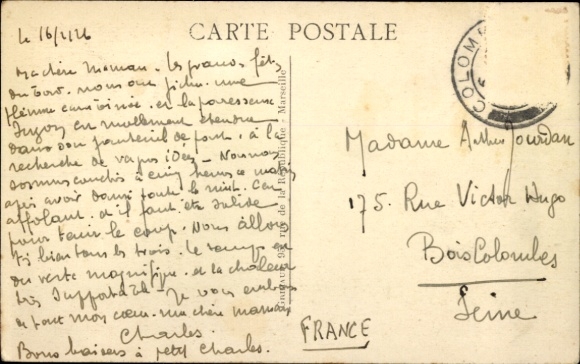 CARTE POSTALE
le 16/2/26
Ma chère Maman. les grandes fêtes
du Tord. nous ont fichu une
flemme carabinée. et la paresseuse
en mollement étendue
dans son fauteuil de pont, à la
recherche de vagues idées - Nous nous
sommes couchés à cinq heures ce matin
après avoir dansé toute la nuit. C'est
affolant. et il faut être solide
pour tenir le coup. Nous allons
si bien tous les trois. Le temps est
du reste magnifique. et la chaleur
très supportable - Je vous embrasse
de tout mon cœur. ma chère maman
Charles.
Bons baisers à petit Charles.
rue de la République - Marseille
COLOMB
Madame Arthur Jourdan
175. Rue Victor Hugo
Bois Colombes
Seine
FRANCE